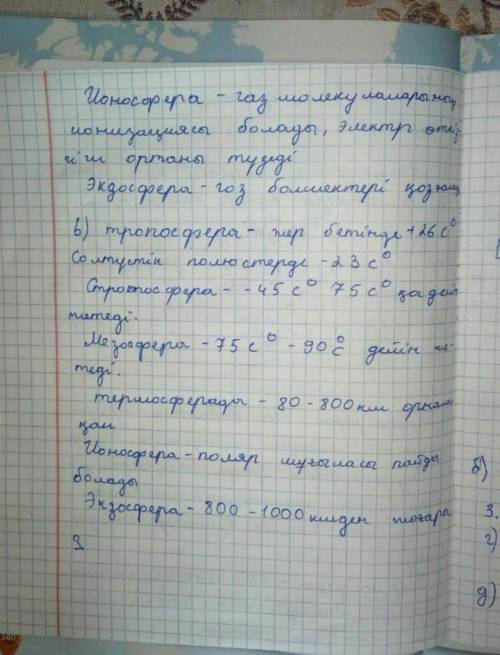 Ионосфера - газ молекулаларының
ионизациясы болады, электр өткіз-
гіш ортаны түзеді
Экдосфера - газ бөлшектері қозғалщ
в) тропосфера - жер бетінде +26 с°
Солтүстік полюстерде -23 с°
Стротосфера - -45 с° 75 с° қа дейін
жетеді.
Мезосфера -75 с° -90 с° дейін же-
теді.
термосферады - 80 - 800 км орнала
қан
Ионосфера - поляр шұғыласы пайда
болады
Экзосфера - 800 - 1000 кмден жоғары
3.
б)
3.
г)
д)
140